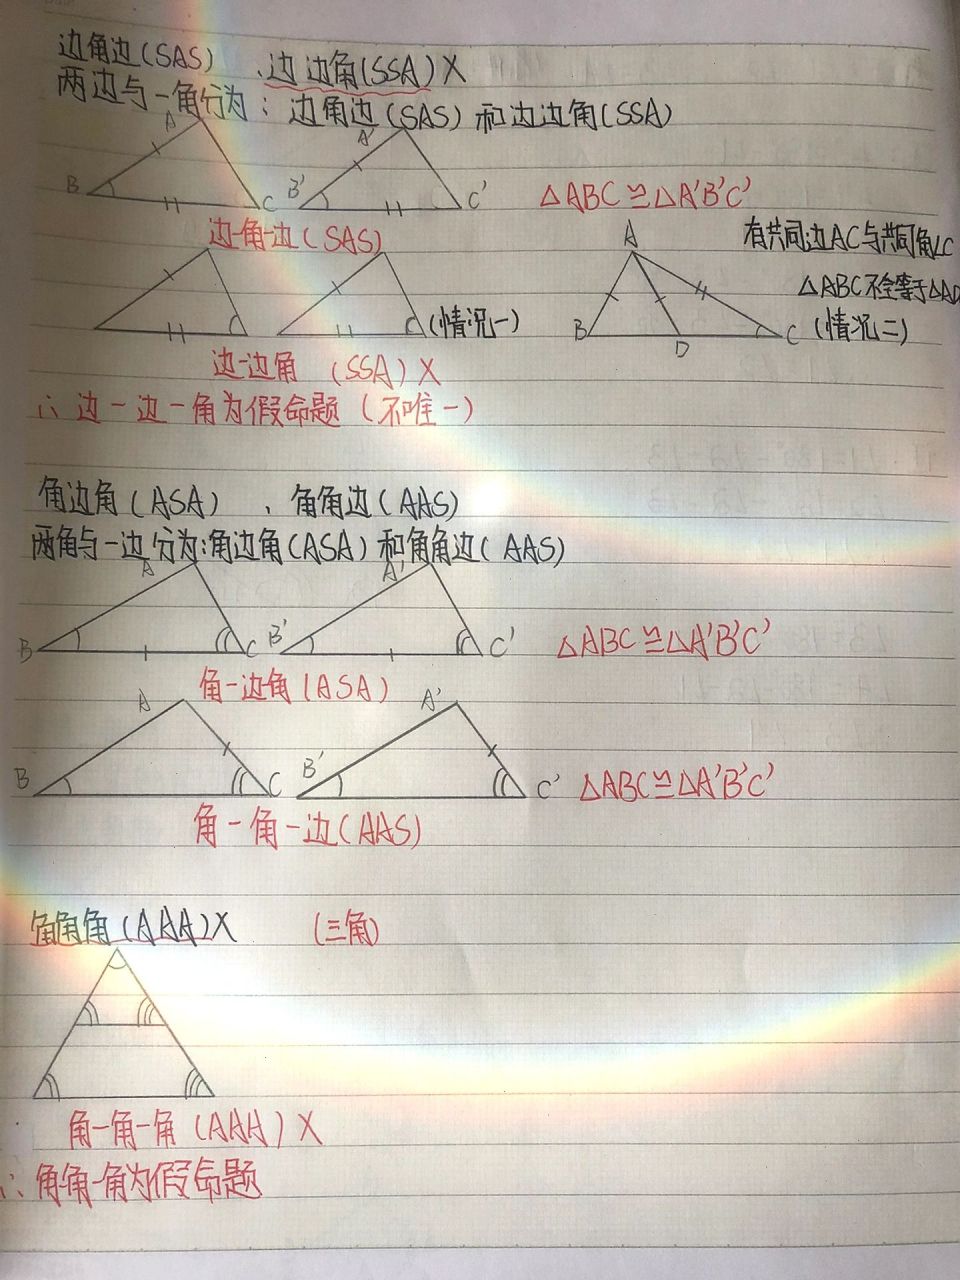 边角边(SAS) 、边边角(SSA)X
两边与一角分为：边角边(SAS)和边边角(SSA)
A A'
B C B' C' △ABC≌△A'B'C'
边-角-边(SAS)
A 有共同边AC与共同角∠C
△ABC不全等于△AD
(情况一) B D C (情况二)
边-边角 (SSA)X
∴边-边-角为假命题(不唯一)
角边角(ASA) 、角角边(AAS)
两角与一边分为:角边角(ASA)和角角边(AAS)
A A'
B C B' C' △ABC≌△A'B'C'
角-边角(ASA)
A A'
B C B' C' △ABC≌△A'B'C'
角-角-边(AAS)
角角角(AAA)X (三角)
角-角-角(AAA)X
∴角角-角为假命题